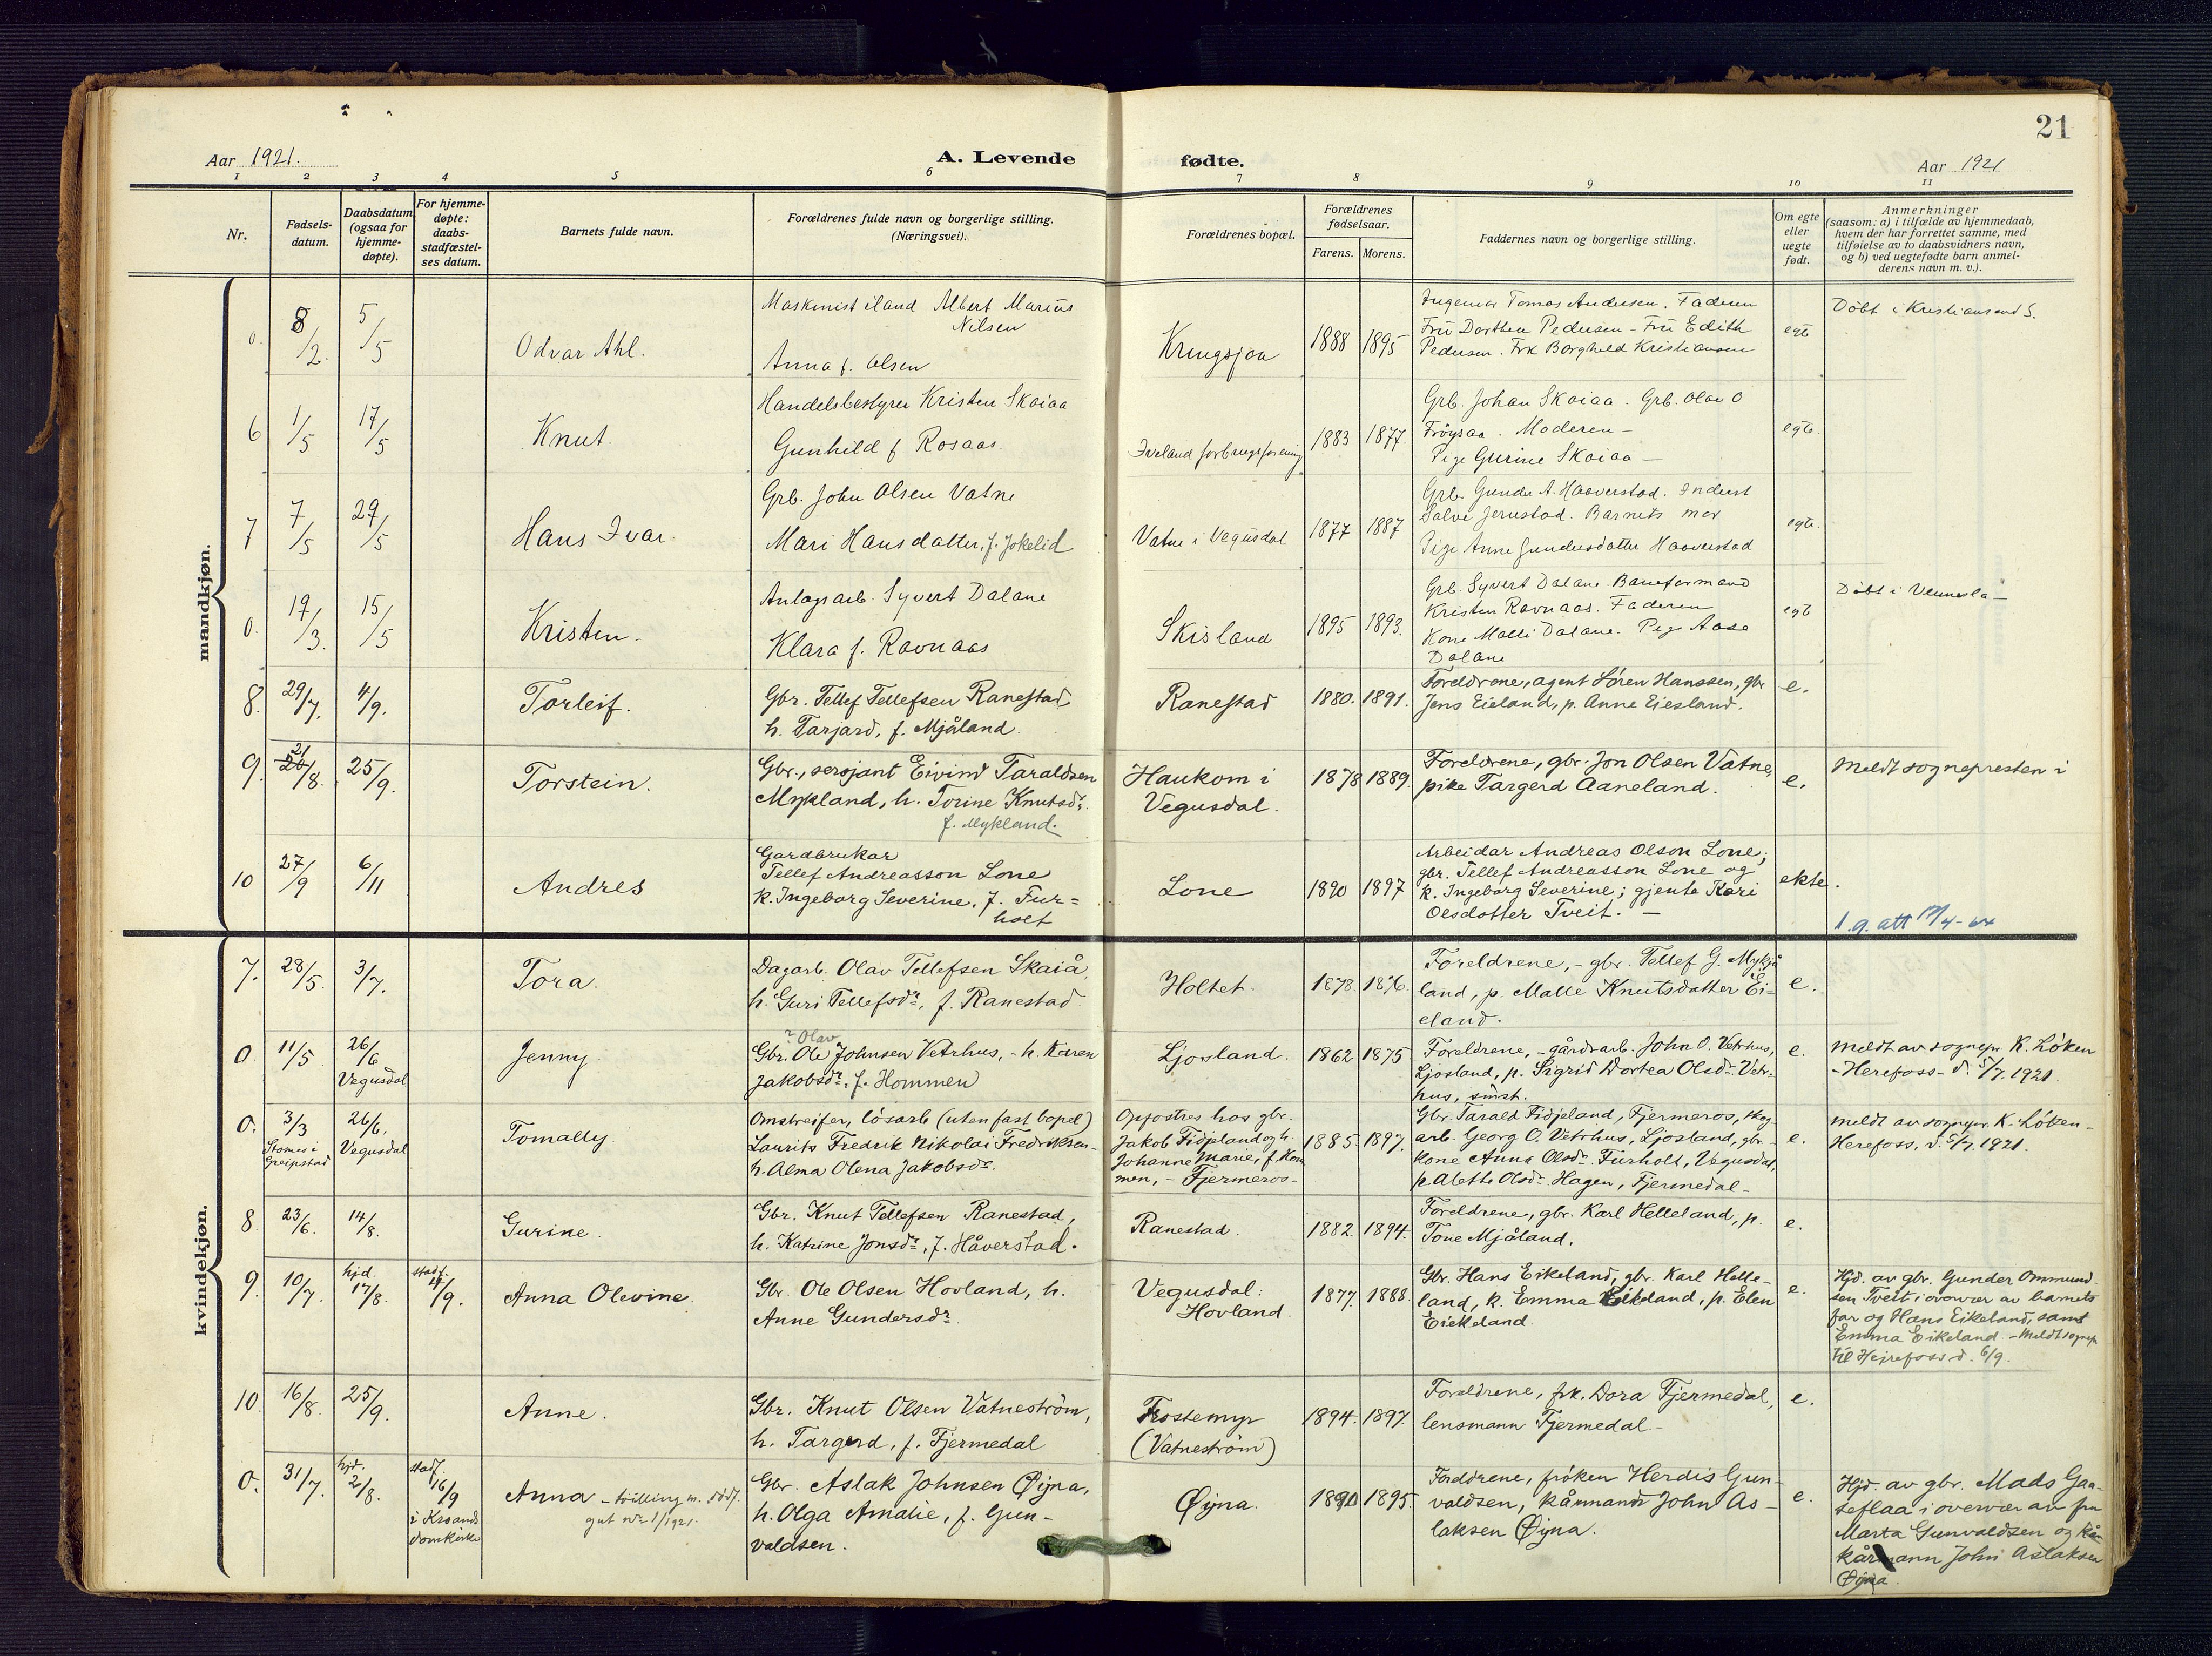 21
Aar 1921.
A. Levende
fødte.
Aar 1921
1 2 3 4 5 6 7 8 9 10 11
Nr.
Fødsels-
datum.
Daabsdatum
(ogsaa for
hjemme-
døpte).
For hjemme-
døpte:
daabs-
stadfæstel-
ses datum.
Barnets fulde navn.
Forældrenes fulde navn og borgerlige stilling.
(Næringsvei).
Forældrenes bopæl.
Forældrenes
fødselsaar.
Farens. Morens.
Faddernes navn og borgerlige stilling.
Om egte
eller
uegte
født.
Anmerkninger
(saasom: a) i tilfælde av hjemmedaab,
hvem der har forrettet samme, med
tilføielse av to daabsvidners navn,
og b) ved uegtefødte barn anmel-
derens navn m. v.).
mandkjøn.
0. 8/2. 5/5 Odvar Ahl.
Maskinist iland Albert Marius
Nilsen
Anna f. Olsen
Kringsjaa
1888 1895
Ingeniør Tomas Andersen. Faderen
Fru Dorthea Pedersen - Fru Edith
Pedersen. Frk Borghild Kristiansen
egte
Döbt i Kristiansand S.
6 1/5 17/5 Knut.
Handelsbestyrer Kristen Skaiaa
Gunhild f Rosaas.
Iveland forbrugsforening
1883 1877.
Grb. Johan Skaiaa. Grb. Olav O
Fröysaa. Moderen -
Pige Gurine Skaiaa -
egte.
7 7/5 29/5 Hans Ivar
Grb. John Olsen Vatne
Mari Hansdatter, f. Jokelid
Vatne i Vegusdal
1877 1887
Grb Gunder A. Haaverstad. Inderst
Salve Jerustad. Barnets mor
Pige Anne Gundersdatter Haaverstad
egte.
0. 17/3. 15/5 Kristen -
Anlægsarb. Syvert Dalane
Klara f. Ravnaas
Skisland
1895 1893.
Grb Syvert Dalane. Baneformand
Kristen Ravnaas. Faderen
Kone Malli Dalane. Pige Aase
Dalane
egte
Döbt i Vennesla -
8. 29/7. 4/9. Torleif.
Gbr. Tellef Tellefsen Ranestad,
h. Tarjard, f. Mjåland.
Ranestad
1880. 1891.
Foreldrene, agent Sören Hanssen, gbr
Jens Eieland, p. Anne Eiesland.
e.
9. 21/8. 25/9. Torstein.
Gbr., sersjant Eivind Taraldsen
Mykland, h. Torine Knutsdr.
f. Mykland.
Haukom i
Vegusdal.
1878 1889.
Foreldrene, gbr. Jon Olsen Vatne,
pike Targerd Aaneland.
e.
Meldt sognepresten i
10 27/9 6/11 Andres
Gardbrukar
Tellef Andreasson Lone
k. Ingeborg Severine, f. Fur=
holt
Lone
1890 1897
Arbeidar Andreas Olson Lone;
gbr. Tellef Andreasson Lone og
k. Ingeborg Severine; gjenta Kari
Olsdotter Tveit. -
ekte.
1. g. att 17/4-64
kvindekjøn.
7. 28/5. 3/7. Tora.
Dagarb. Olav Tellefsen Skaiå,
h. Guri Tellefsdr., f. Ranestad.
Holtet.
1878. 1876.
Foreldrene, - gbr. Tellef G. Mykjå
land, p. Malle Knutsdatter Ei-
eland.
e.
0. 11/5 26/6 Vegusdal Jenny.
? Olav
Gbr. Ole Johnsen Vetrhus, - h. Karen
Jakobsdr., f. Hommen
Ljosland.
1862 1875
Foreldrene, - gårdsarb. John O. Vetrhus,
Ljosland, p. Sigrid Dortea Olsdr. Vetr-
hus, smst.
e.
Meldt av sognepr K. Løken
- Herefoss - d. 5/7. 1921.
0. 3/3 Stomes i Greipstad 26/6. Vegusdal Tomally.
Omstreifer, lösarb (uten fast bopel)
Laurits Fredrik Nikolai Fredriksen -
h. Alma Olena Jakobsdr.
Opfostres hos gbr.
Jakob Fidjeland og h.
Johanne Marie, f. Hom
men, - Fjermeros -
1885 1897.
Gbr. Tarald Fidjeland, Fjermeros, skog-
arb. Georg O. Vetrhus, Ljosland, gbr. -
kone Anna Olsdr. Furholt, Vegusdal,
p Alette Olsdr. Hagen, Fjermedal -
e.
meldt av sognepr. K. Løken -
Herefoss, d. 5/7 1921.
8 23/6. 14/8. Gurine.
Gbr. Knut Tellefsen Ranestad,
h. Katrine Jonsdr., f. Håverstad.
Ranestad.
1882. 1894.
Foreldrene, gbr. Karl Helleland, p.
Tone Mjåland.
e.
9. 10/7. hjd. 17/8. stadf. 4/9. Anna Olevine
Gbr. Ole Olsen Hovland, h.
Anne Gundersdr.
Vegusdal:
Hovland.
1877. 1888.
Gbr. Hans Eikeland, gbr. Karl Helle-
land, k. Emma Eikeland, p. Elen
Eiekeland.
e.
Hjd. av gbr. Gunder Ommund-
sen Tveit i overvær av barnets
far og Hans Eikeland, samt
Emma Eikeland. - Meldt sognep.
til Hejrefoss d. 6/9.
10. 16/8. 25/9. Anne.
Gbr. Knut Olsen Vatneström,
h. Targerd, f. Fjermedal
Frostemyr
(Vatneström)
1894. 1897.
Foreldrene, frk. Dora Fjermedal,
lensmann Fjermedal -
e.
0. 31/7. hjd. 2/8. stadf. 16/9 i Krsands domkirke
Anna - tvilling m. dødf.
gut nr 1/1921.
Gbr. Aslak Johnsen Øyna,
h. Olga Amalie, f. Gun-
valdsen.
Øyna.
1890 1895.
Foreldrene, fröken Herdis Gun-
valdsen, kårmand John As-
laksen Øyna.
e.
Hjd. av gbr. Mads Gaa-
seflaa i overvær av fru
Marta Gunvaldsen og
kårmann John Aslaksen
Øyna.